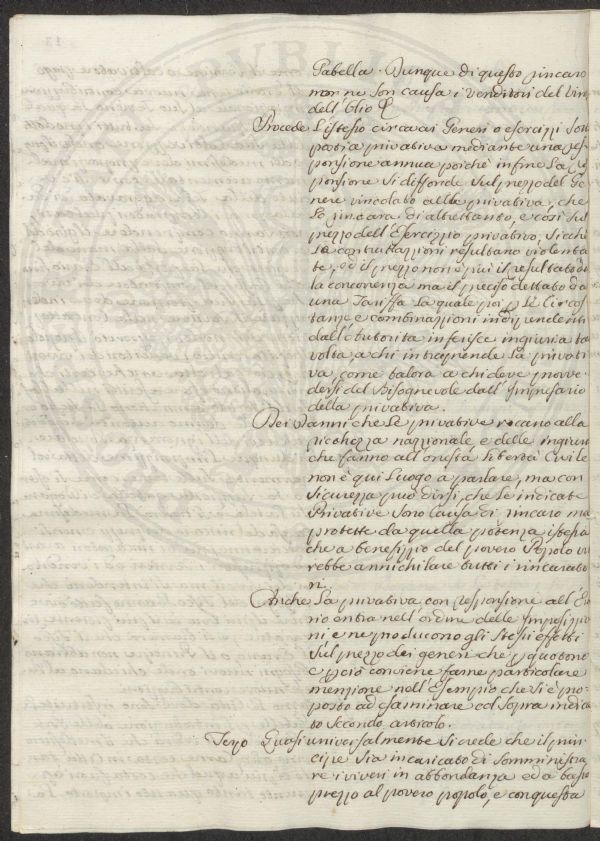 Gabella. Dunque di questo rincaro
non ne son causa i Venditori del Vino
dell'Olio
Procede l'istesso circa ai Generi o esercizzi sott
posti a privativa mediante una res-
ponsione annua poiche infine la re
ponsione si diffonde sul prezzo del Ge
nere vincolato alla privativa, che
lo rincara di altrettanto, e così sul
prezzo dell'Esercizio privativo, sicche
le contrattazioni resultano violenta
te, ed il prezzo non è più il resultato del
la concorrenza ma il preciso dettato da
una Tariffa la quale poi p le Circos
tanze e combinazioni indipendenti
dall'Autorita inferisce ingiuria ta
volta a chi intraprende la privati
va, come talora a chi deve provve
dersi del Bisognevole dall'Impresario
della privativa.
Dei Danni che le privative recano alla
ricchezza nazzionale, e delle ingiurie
che fanno all'onesta libertà Civile
non è qui luogo a parlare, ma con
sicurezza può dirsi, che le indicate
Privative sono causa di rincaro ma
protette da quella potenza istessa
che a benefizzio del povero Popolo vor
rebbe annichilare tutti i rincarato
ri.
Anche la privativa con responsione all'Era
rio entra nell'ordine delle Imposizzio
ni e ne producono gli stessi effetti
sul prezzo dei generi che percuotono
e perciò conviene farne particolare
menzione nell'Esempio che si è pro
posto ad esaminare col sopra indica
to secondo articolo.
Terzo Quasi universalmente si crede che il prin
cipe sia incaricato di somministra
re i viveri in abbondanza ed a basso
prezzo al povero popolo, e con questa